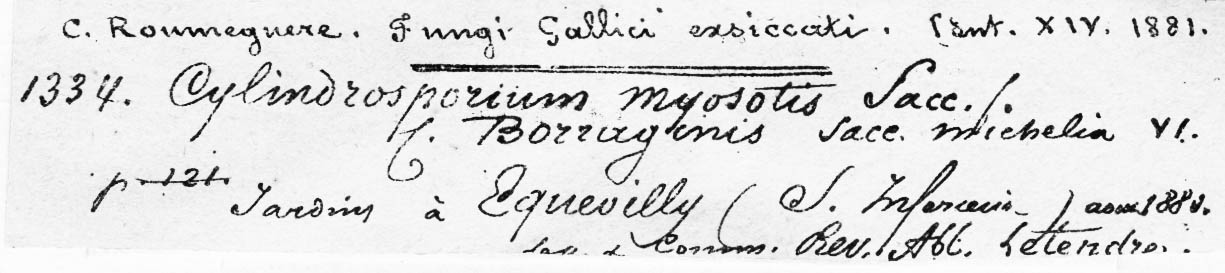 C. Roumeguere. Fungi Gallici exsiccati. Cent. XIV. 1881.
1334. Cylindrosporium Myosotis Sacc. f.
f. Borraginis Sacc. Michelia VI.
p. 121. Jardins à Equevilly (S. Inferieure) aout 1880.
& Comm. Rev. Abb. Letendre.